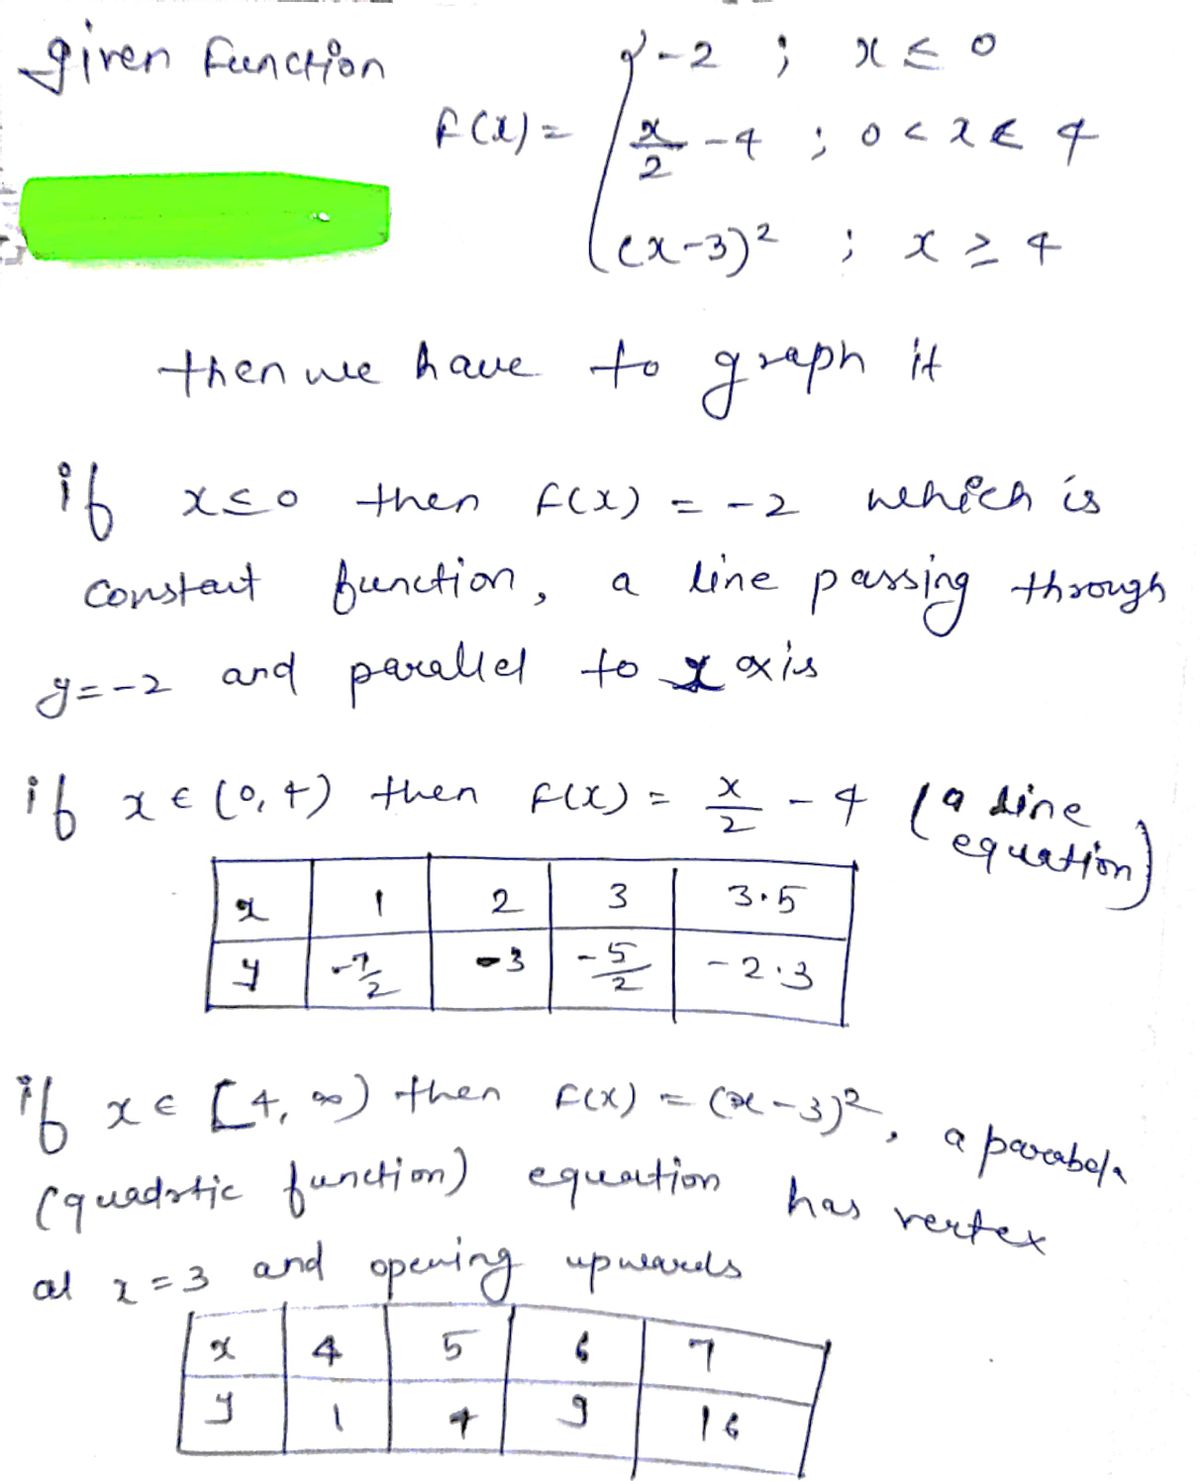 given function
f(x) = { -2 ; x ≤ 0
x/2 - 4 ; 0 < x < 4
(x-3)² ; x ≥ 4
then we have to graph it
if x ≤ 0 then f(x) = -2 which is
constant function, a line passing through
y = -2 and parallel to x axis
if x ∈ (0, 4) then f(x) = x/2 - 4 (a line equation)
x 1 2 3 3.5
y -7/2 -3 -5/2 -2.3
if x ∈ [4, ∞) then f(x) = (x-3)², a parabola
(quadratic function) equation has vertex
at x = 3 and opening upwards
x 4 5 6 7
y 1 4 9 16